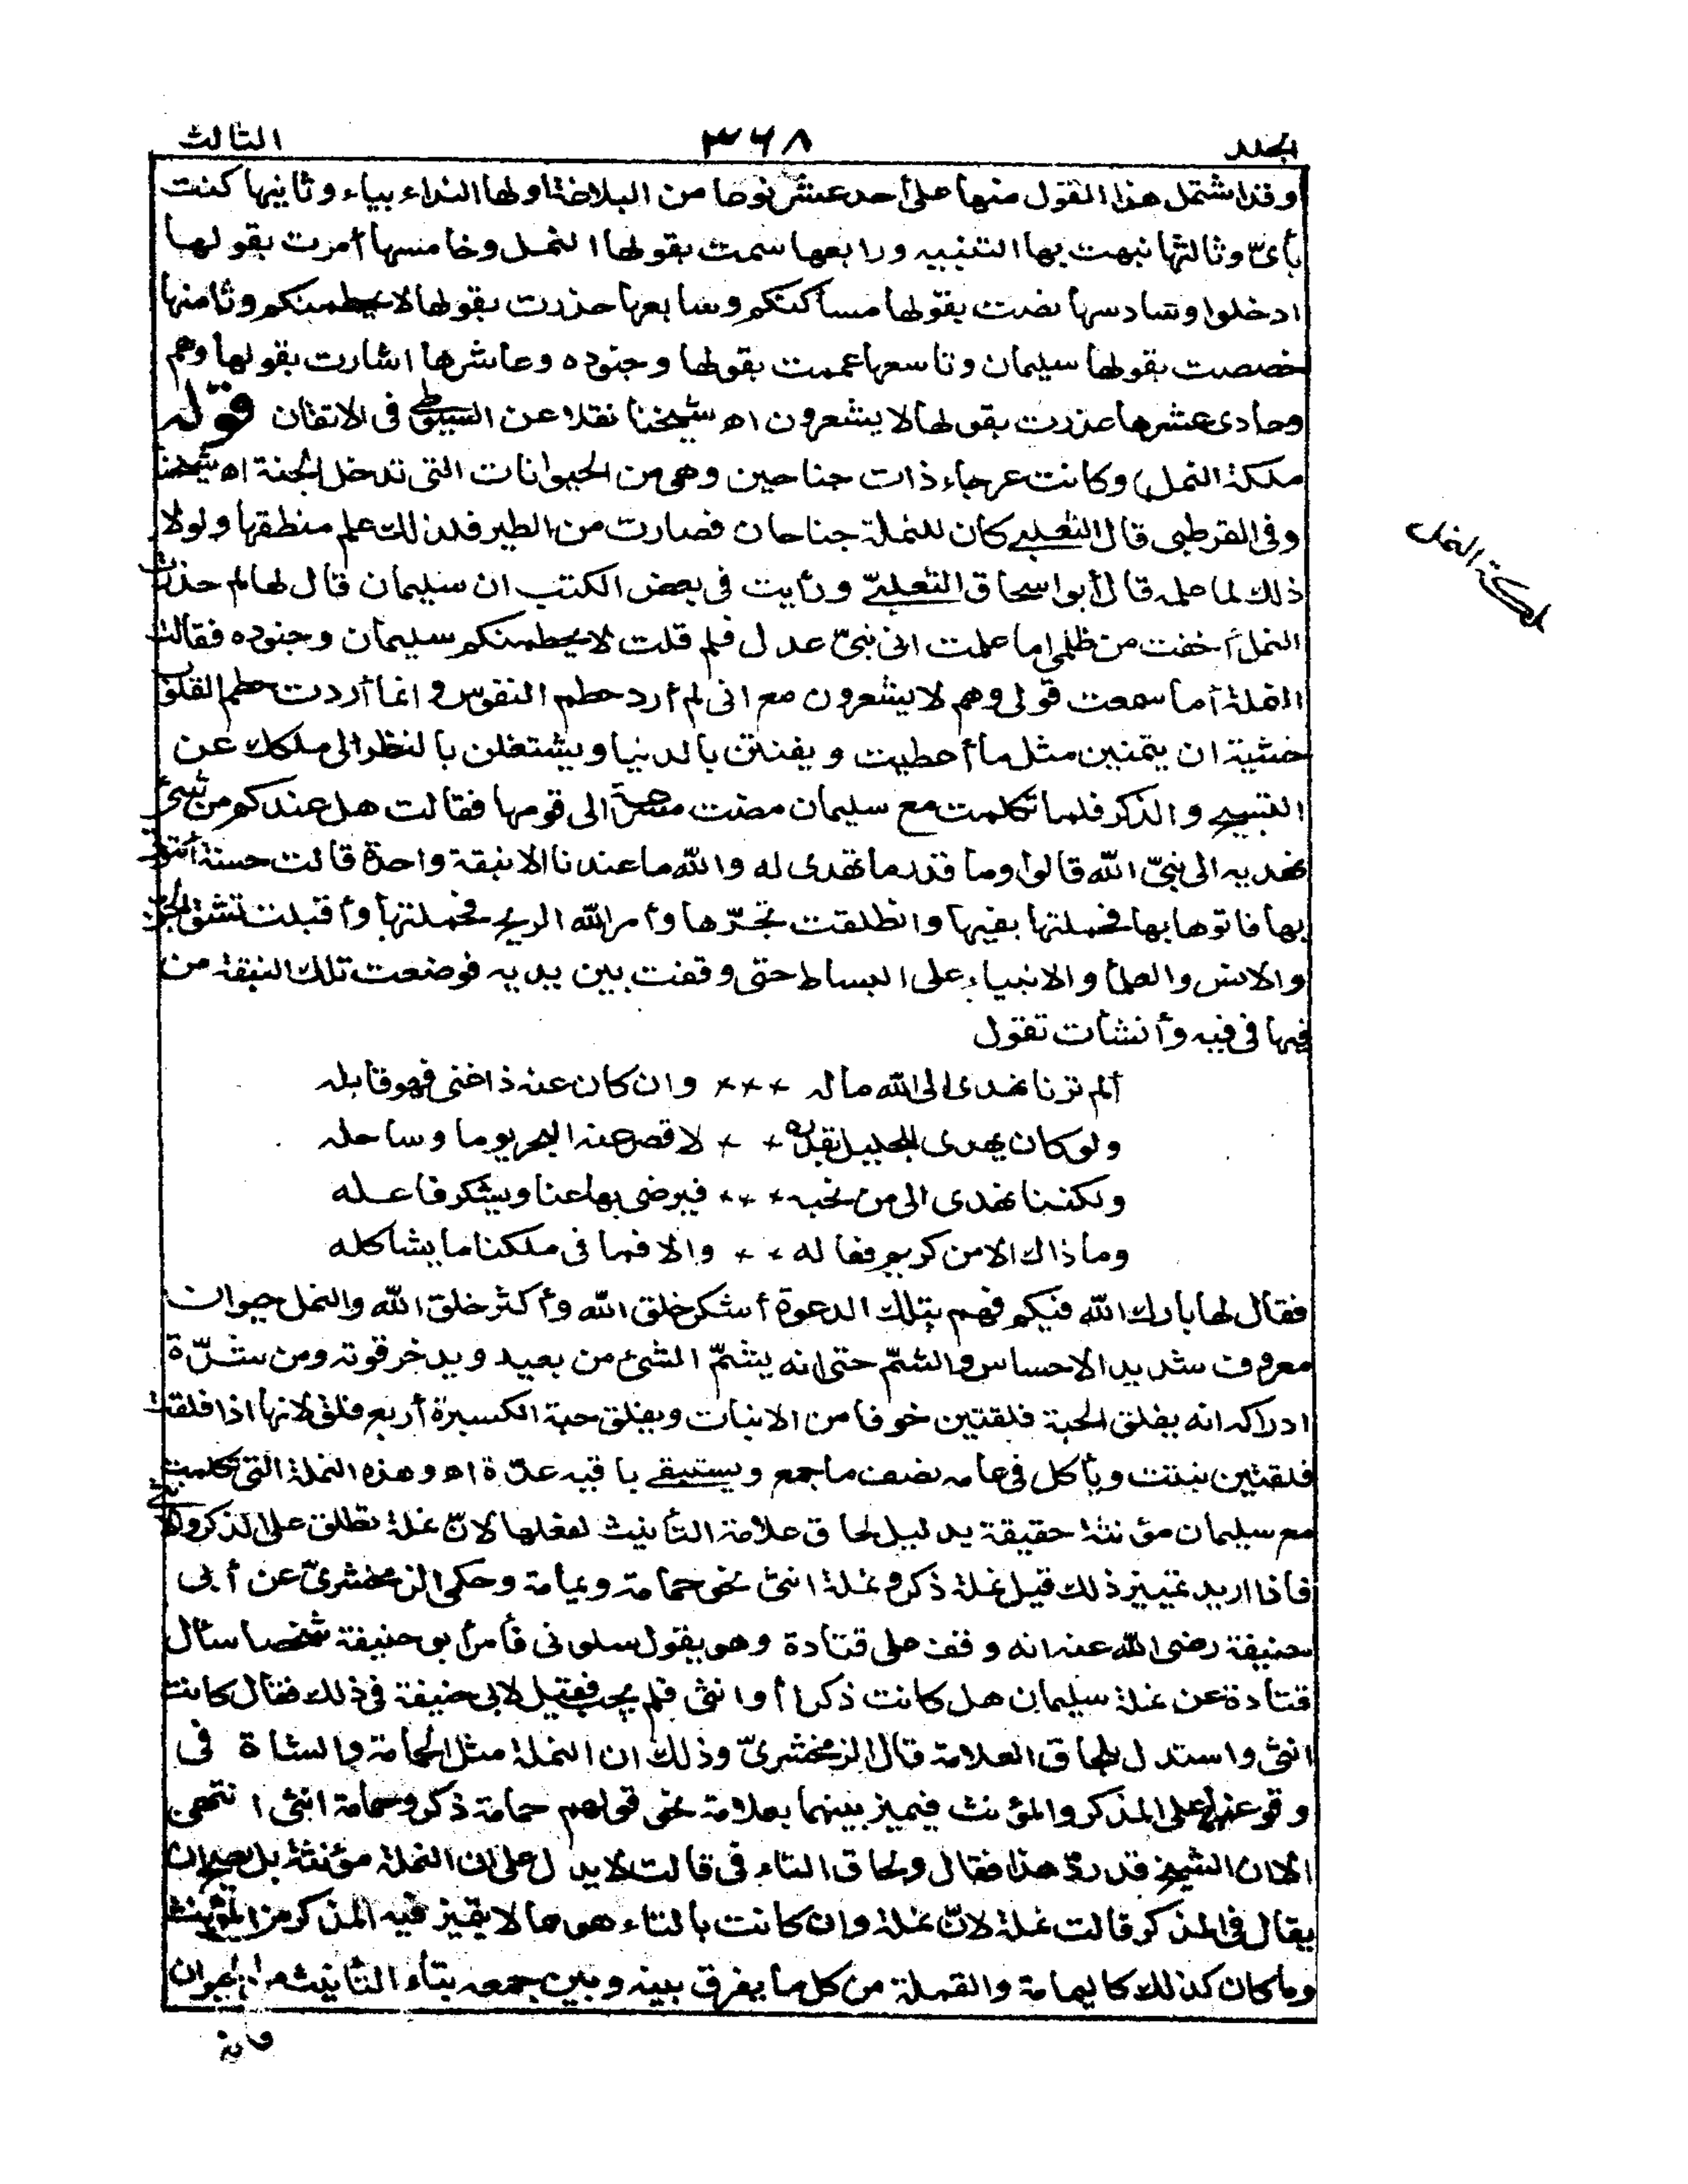 المجلد ٣٦٨ الثالث
وقد اشتمل هذا القول منها على أحد عشر نوعا من البلاغة اولها النداء بياء وثانيها كنت
بأىّ وثالثها نبهت بها التنبيه ورابعها سمت بقولها النمل وخامسها أمرت بقولها
ادخلوا وسادسها نصت بقولها مساكنكم وسابعها حذرت بقولها لا يحطمنكم وثامنها
خصصت بقولها سليمان وتاسعها عممت بقولها وجنوده وعاشرها اشارت بقولها وهم
وحادى عشرها عذرت بقولها لا يشعرون اه شيخنا نقلا عن السيوطى فى الاتقان قوله
ملكة النمل) وكانت عرجاء ذات جناحين وهى من الحيوانات التى تدخل الجنة اه شيخنا
وفى القرطبى قال الثعلبى كان للنملة جناحان فصارت من الطير فلذلك علم منطقها ولولا
ذلك لما علمه قال أبو اسحاق الثعلبىّ ورأيت فى بعض الكتب ان سليمان قال لها لم حذرت
النمل أخفت من ظلمى اما علمت انى نبىّ عدل فلم قلت لا يحطمنكم سليمان وجنوده فقالت
النملة أما سمعت قولى وهم لا يشعرون مع انى لم أرد حطم النفوس وانما أردت حطم القلوب
خشية ان يتمنين مثل ما أعطيت ويفتتن بالدنيا ويشتغلن بالنظر الى ملكك عن
التسبيح والذكر فلما تكلمت مع سليمان مضت مسرعة الى قومها فقالت هل عندكم من شئ
نهديه الى نبىّ الله قالوا وما قدر ما نهدى له والله ما عندنا الا نبقة واحدة قالت حسنة ائتونى
بها فاتوها بها فحملتها بفيها وانطلقت تجرّها وأمر الله الريح فحملتها وأقبلت تشق الجن
والانس والعلما والانبياء على البساط حتى وقفت بين يديه فوضعت تلك النبقة من
فيها فى فيه وأنشات تقول
ألم ترنا نهدى الى الله ماله ××× وان كان عنه ذا غنى فهو قابله
ولو كان يهدى للجليل بقدره ×× لاقصر عنه البحر يوما وساحله
ولكننا نهدى الى من نحبه ××× فيرضى بها عنا ويشكر فاعله
وما ذاك الا من كريم فعاله ×× والا فما فى ملكنا ما يشاكله
فقال لها بارك الله فيكم فهم بتلك الدعوة أشكر خلق الله وأكثر خلق الله والنمل حيوان
معروف شديد الاحساس والشمّ حتى انه يشمّ الشئ من بعيد ويدخر قوته ومن شدّة
ادراكه انه يفلق الحبة فلقتين خوفا من الانبات ويفلق حبة الكسبرة أربع فلق لانها اذا فلقت
فلقتين نبتت ويأكل فى عامه نصف ما جمع ويستبقى باقيه عدّة اه وهذه النملة التى تكلمت
مع سليمان مؤنثة حقيقة بدليل لحاق علامة التأنيث لفعلها لانّ نملة تطلق على الذكر والانثى
فاذا اريد تمييز ذلك قيل نملة ذكر ونملة انثى نحو حمامة ويمامة وحكى الزمخشرىّ عن أبى
حنيفة رضى الله عنه انه وقف على قتادة وهو يقول سلونى فأمر أبو حنيفة شخصا سأل
قتادة عن نملة سليمان هل كانت ذكرا أو انثى فلم يجب فقيل لابى حنيفة فى ذلك فقال كانت
انثى واستدل بلحاق العلامة قال الزمخشرىّ وذلك ان النملة مثل الحمامة والشاة فى
وقوعها على المذكر والمؤنث فيميز بينهما بعلامة نحو قولهم حمامة ذكر وحمامة انثى انتهى
الا ان الشيخ قد ردّ هذا فقال ولحاق التاء فى قالت لا يدل على ان النملة مؤنثة بل يصح ان
يقال فى المذكر قالت نملة لانّ نملة وان كانت بالتاء هو مما لا يتميز فيه المذكر من المؤنث
وما كان كذلك كاليمامة والقملة من كل ما يفرق بينه وبين جمعه بتاء التأنيث من الحيوان
فانه
ملكة النمل